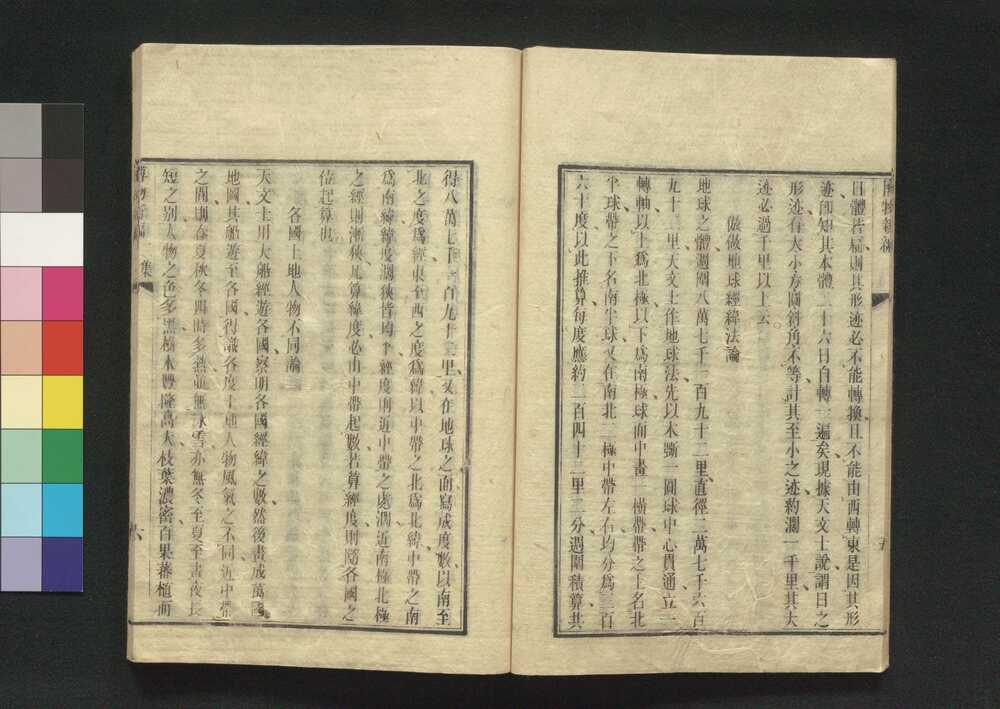 日體若穩則其形迹必不能轉換且不能由西轉東是因其形
迹卽知其本體二十六日自轉一遍矣現據天文士說謂日之
形迹有大小方圓斜角不等計其至小之迹約濶一千里其大
迹必過千里以上云
倣做地球經緯法論
地球之體週圍八萬七千一百九十二里直徑二萬七千六百
九十二里天文士作地球法先以木斵一圓球中心貫通立一
轉軸以上爲北極以下爲南極球面中畫一橫帶帶之上名北
半球帶之下名南半球又在南北二極中帶左右均分爲三百
六十度以此推算每度應約二百四十二里二分週圍積算共
得八萬七千一百九十二里又在地球之面寫成度數以南至
北之度爲經東至西之度爲緯以中帶之北爲北緯中帶之南
爲南緯緯度濶狹皆均平經度則近中帶之處濶近南極北極
之經則漸狹凡算緯度必由中帶起數若算經度則隨各國之
位起算也
各國土地人物不同論
天文士用大船經遊各國察明各國經緯之數然後畫成萬國
地圖其船遊至各國得識各度土地人物風氣之不同近中帶
之圓則春夏秋冬四時多熱並無冰雪亦無冬至夏至晝夜長
短之別人物之色多黑樹木豐隆高大枝葉濃密百果蕃植而